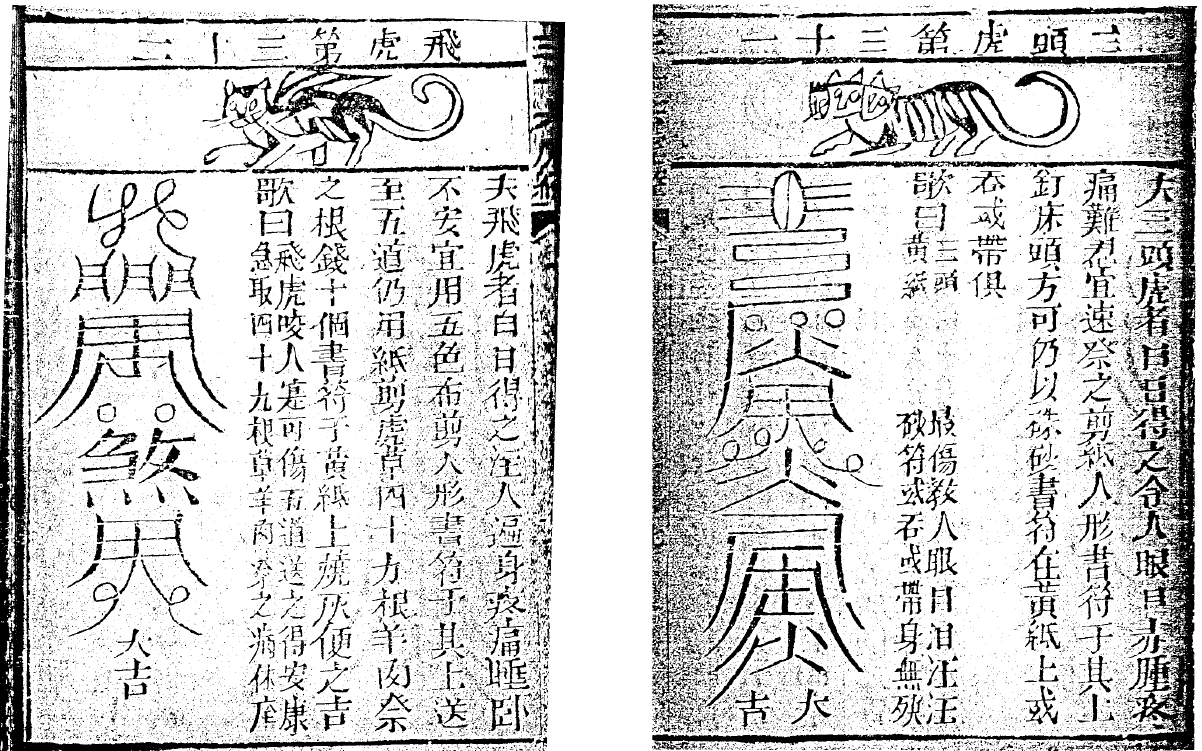 三頭虎第三十一
夫三頭虎者白日得之令人眼目赤腫疼
痛難忍宜速祭之剪紙人形書符于其上
釘床頭方可仍以硃砂書符在黃紙上或
吞或帶俱
歌曰三頭 最傷教人眼目泪汪汪
黃紙 砂符或吞或帶身無殃
大吉
飛虎第三十二
夫飛虎者白日得之注人遍身疼痛睡卧
不安宜用五色布剪人形書符于其上送
至五道仍用紙剪虎草四十九根羊肉祭
之根錢十個書符于黃紙上燒灰便之吉
歌曰飛虎咬人定可傷五道送之得安康
急取四十九根草羊肉祭之病休
大吉